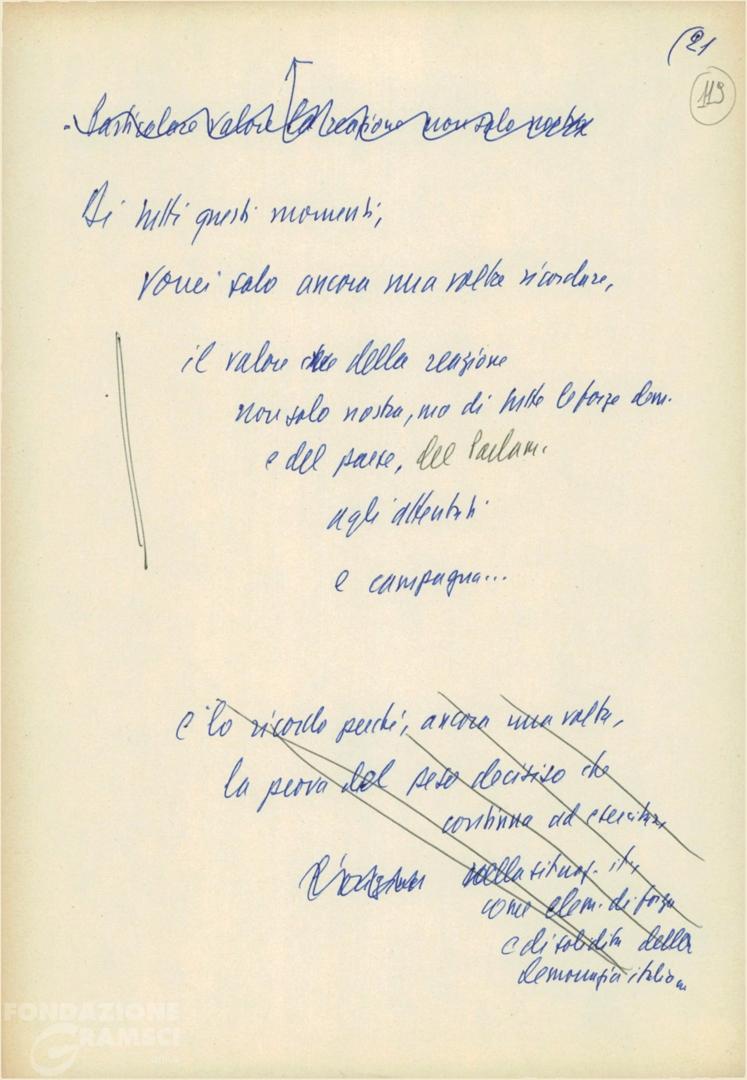 (21
119
Particolare valore la reazione non solo nostra
Di tutti questi momenti,
vorrei solo ancora una volta ricordare,
il valore che della reazione
non solo nostra, ma di tutte le forze dem.
e del paese, del Parlam.
agli attentati
e campagna...
e lo ricordo perché, ancora una volta,
la prova del peso decisivo che
continua ad esercitare
nella situaz. it.
come elem. di forza
e di solidità della
democrazia italiana
FONDAZIONE
GRAMSCI